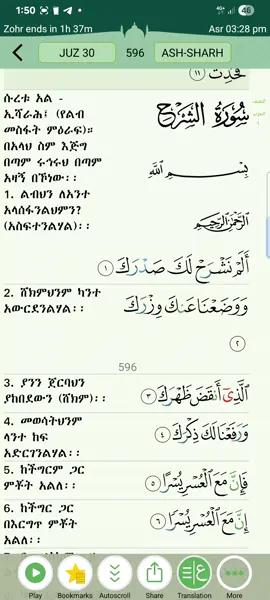 1:50
46
Zohr ends in 1h 37m
Asr 03:28 pm
JUZ 30
596
ASH-SHARH
فَحَدِّثْ ١١
ሱረቱ አል -
ኢሻራሕ፤ (የልብ
መስፋት ምዕራፍ)።
በአላህ ስም እጅግ
በጣም ሩኅሩህ በጣም
አዛኝ በኾነው፡፡
سُورَةُ الشَّرْحِ
بِسْمِ اللَّهِ
الرَّحْمَٰنِ الرَّحِيمِ
1. ልብህን ለአንተ
አላሰፋንልህምን?
(አስፍተንልሃል)፡፡
أَلَمْ نَشْرَحْ لَكَ صَدْرَكَ ١
2. ሸክምህንም ካንተ
አውርደንልሃል፡፡
وَوَضَعْنَا عَنكَ وِزْرَكَ
٢
596
3. ያንን ጀርባህን
ያከበደውን (ሸክም)፡፡
الَّذِي أَنقَضَ ظَهْرَكَ ٣
4. መወሳትህንም
ላንተ ከፍ
አድርገንልሃል፡፡
وَرَفَعْنَا لَكَ ذِكْرَكَ ٤
5. ከችግርም ጋር
ምቾት አልለ፡፡
فَإِنَّ مَعَ الْعُسْرِ يُسْرًا ٥
6. ከችግር ጋር
በእርግጥ ምቾት
አልለ፡፡
إِنَّ مَعَ الْعُسْرِ يُسْرًا ٦
Play
Bookmarks
Autoscroll
Share
Translation
More